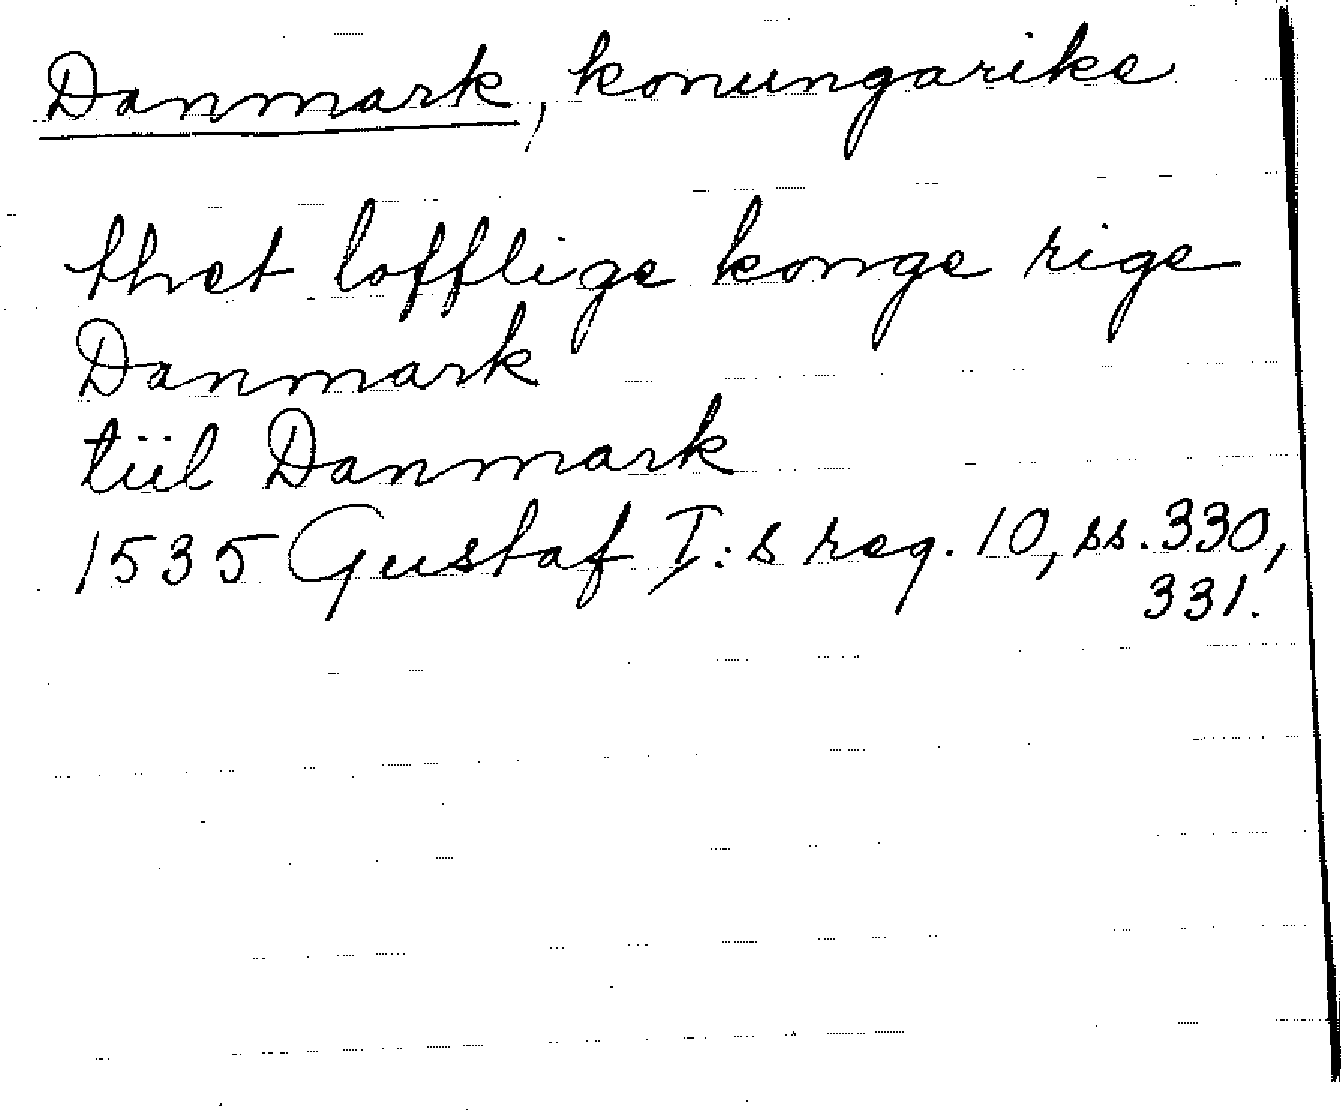 Danmark, konungarike
thet lofflige konge rige
Danmark
tiil Danmark
1535 Gustaf I:s reg. 10, ss. 330,
331.